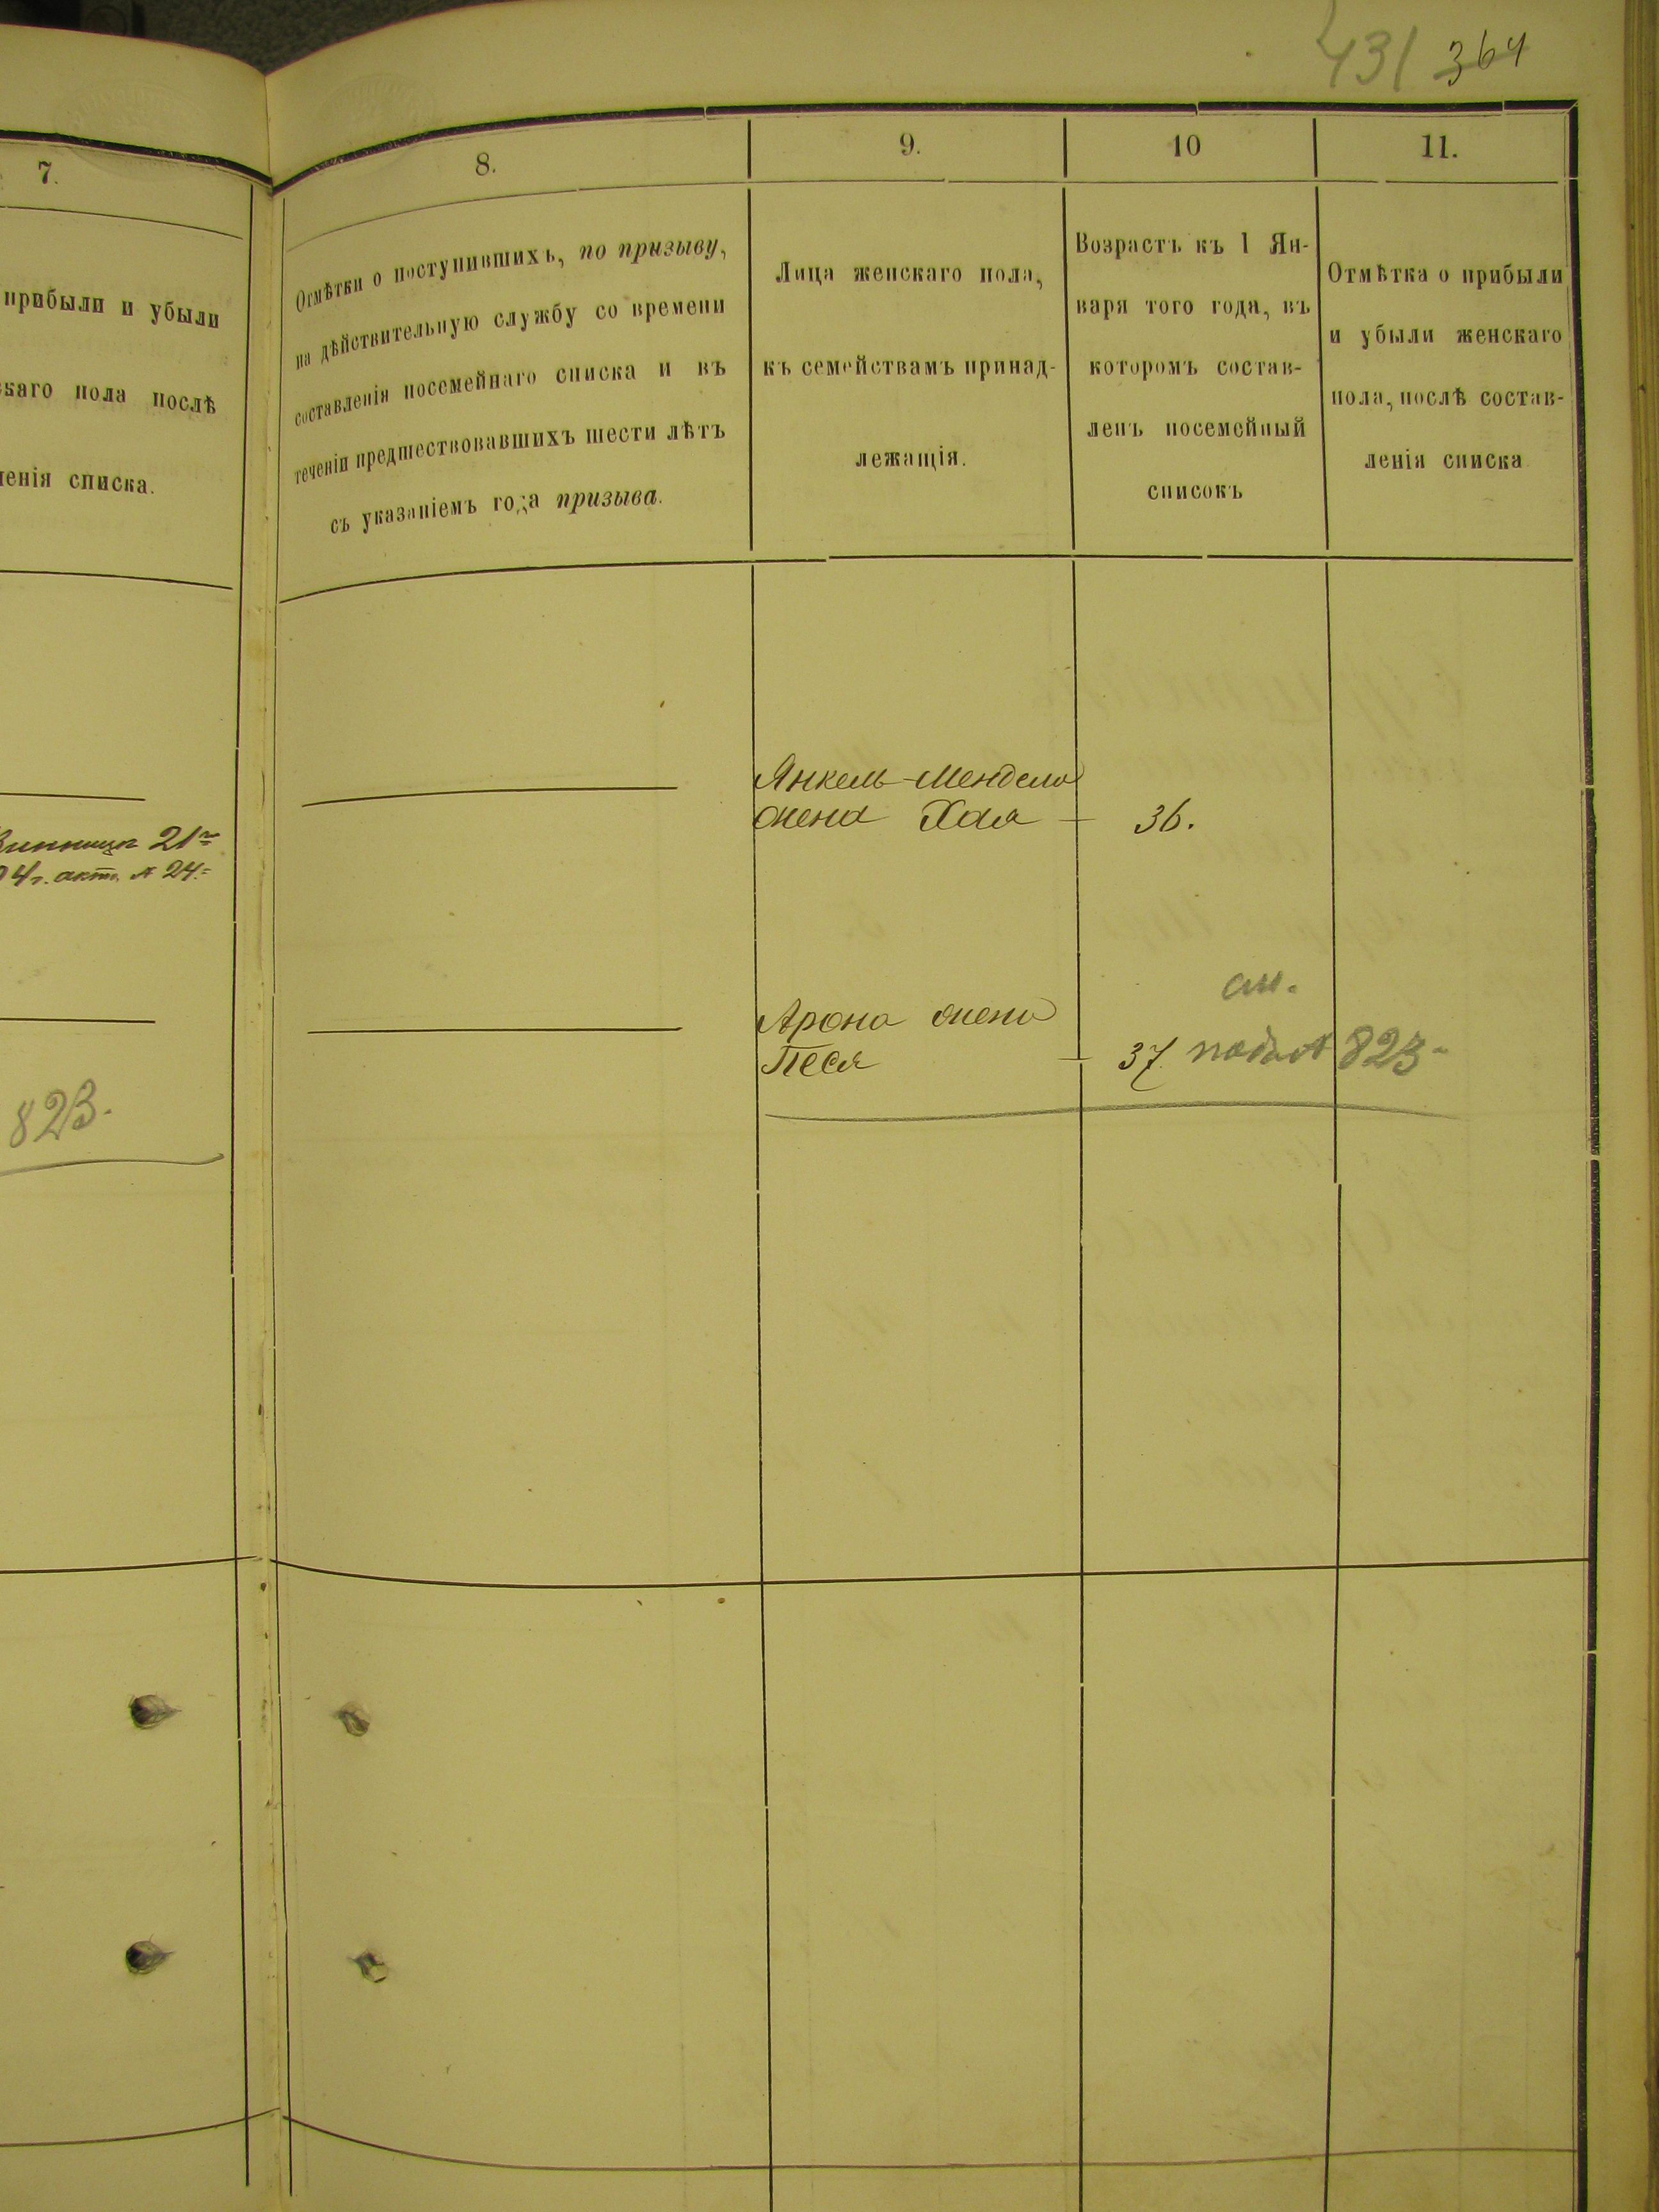 431 364
7.
прибыли и убыли
скаго пола послѣ
ленія списка.
Винница 21го
4 г. акт. № 24.
823.
8.
Отмѣтки о поступившихъ, по призыву,
на дѣйствительную службу со времени
составленія посемейнаго списка и въ
теченіи предшествовавшихъ шести лѣтъ
съ указаніемъ года призыва.
9.
Лица женскаго пола,
къ семействамъ принад-
лежащія.
10
Возрастъ къ 1 Ян-
варя того года, въ
которомъ состав-
ленъ посемейный
списокъ
11.
Отмѣтка о прибыли
и убыли женскаго
пола, послѣ состав-
ленія списка
Янкель-Менделя
жена Хая — 36.
см.
Арона жена
Песя — 37 под № 823-